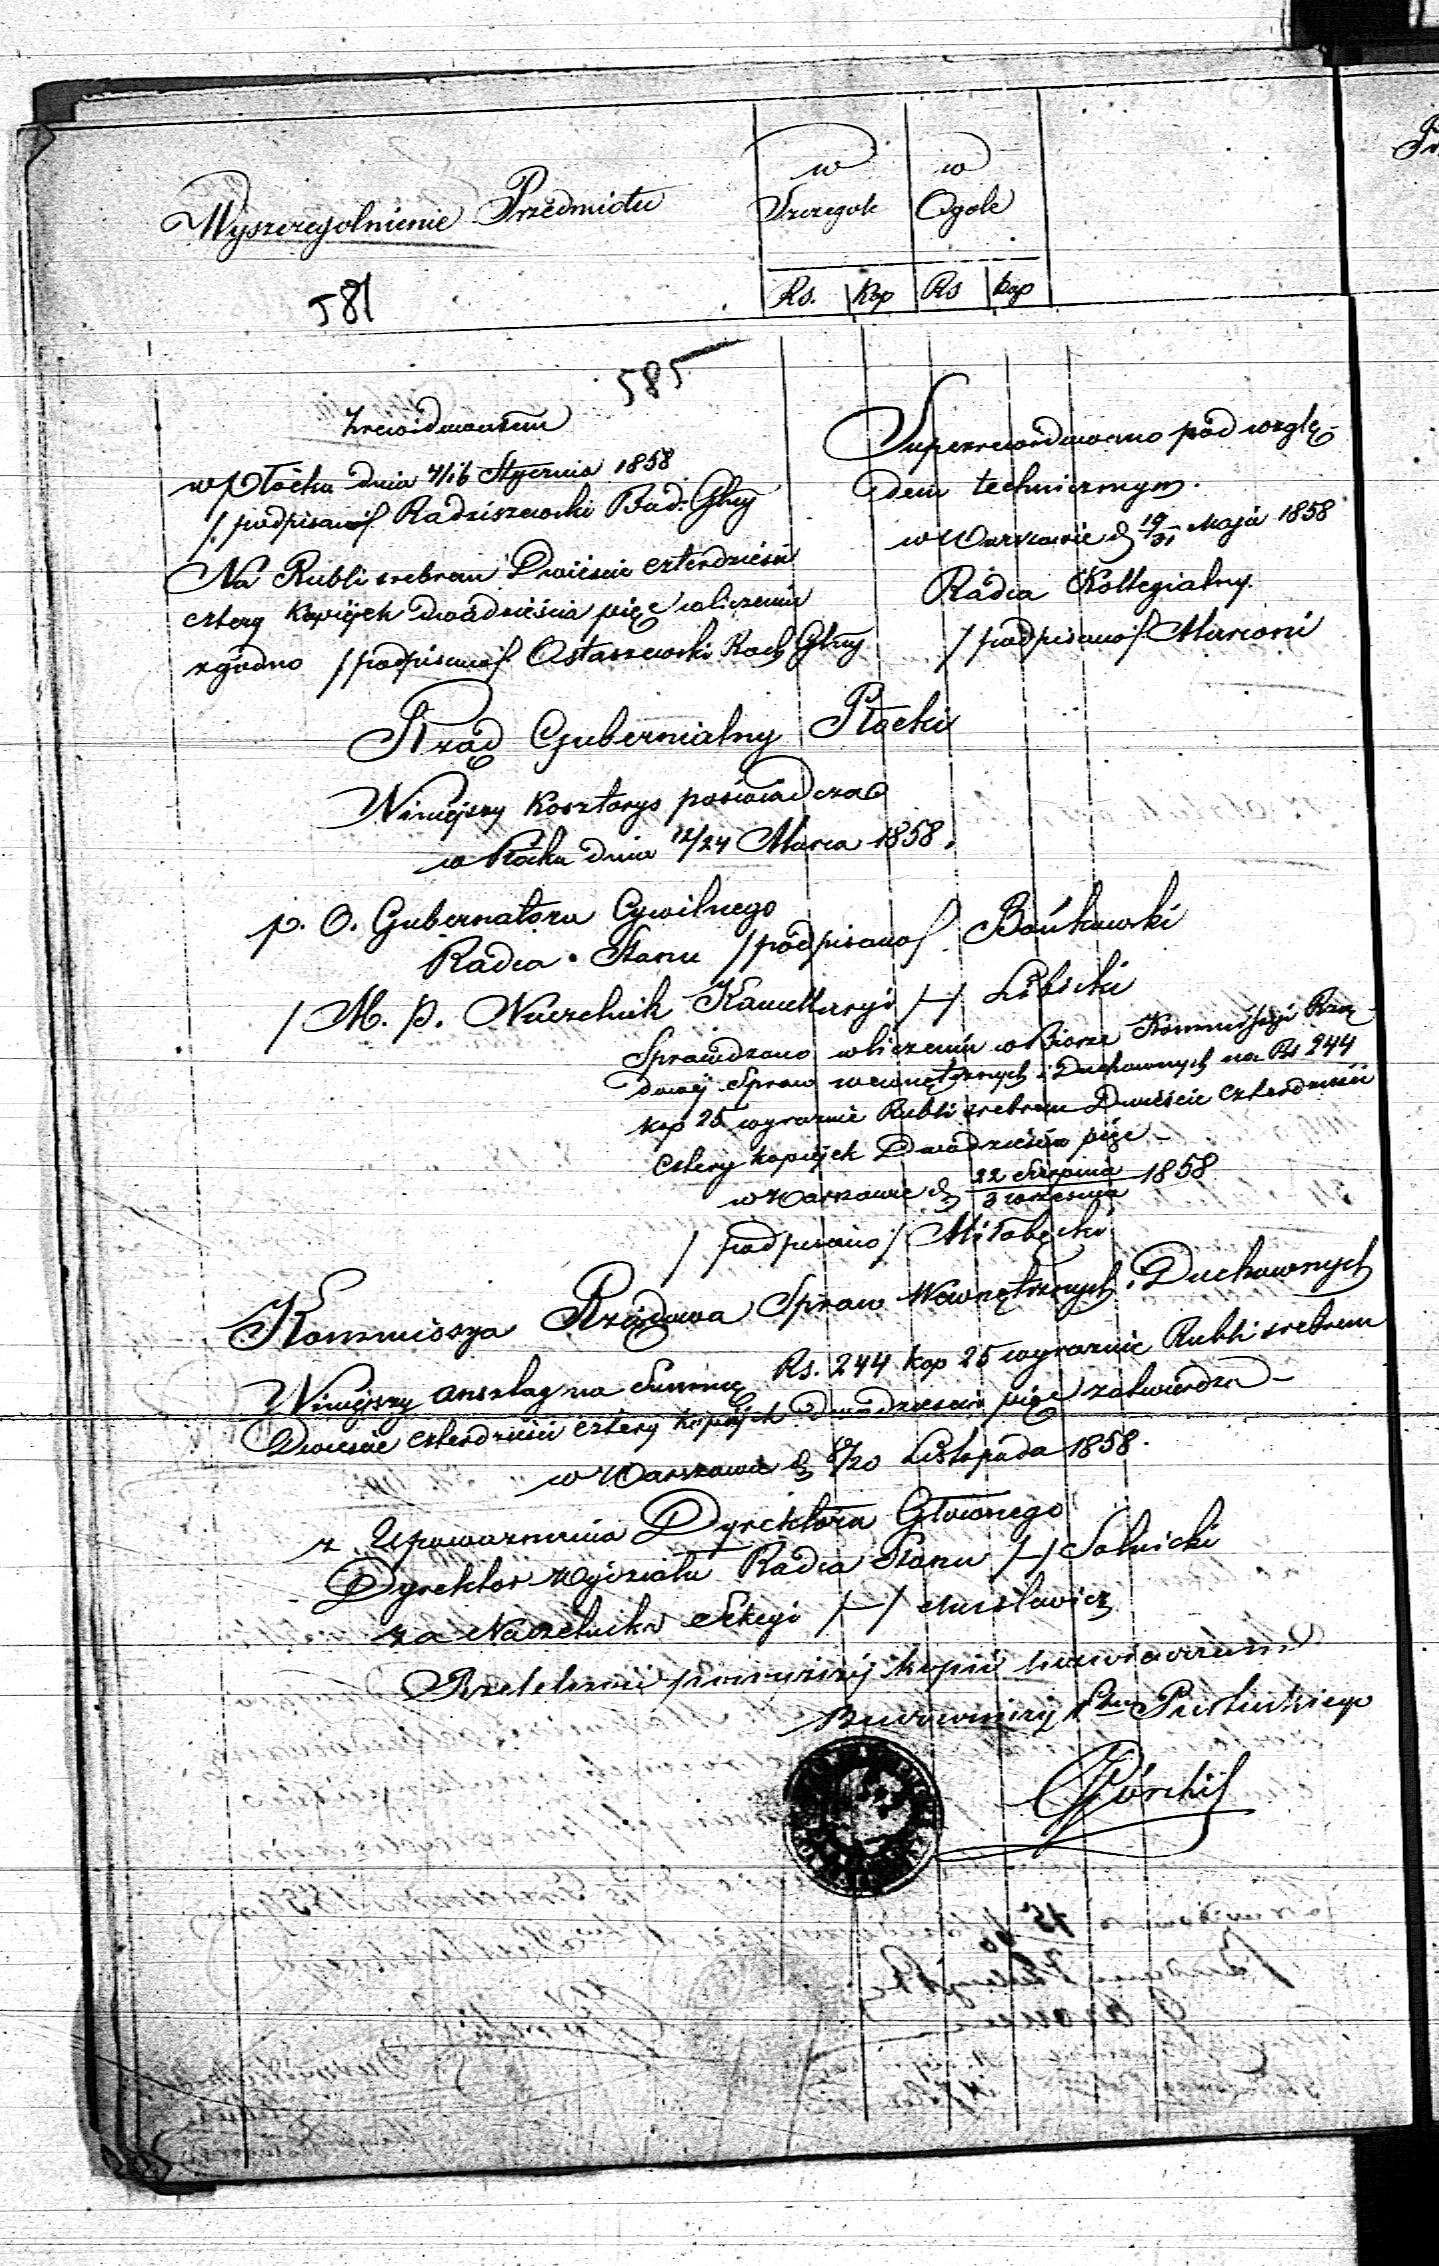 Wyszczegolnienie Przedmiotu
w
Szczegole
w
Ogole
Rs. Kop Rs kop
581
585
Zrewidowałem
w Płocku dnia 4/16 Stycznia 1858
/podpisano/ Radziszewski Bud: Gbny
Na Rubli srebrem Dwieście czterdzieści
cztery kopiejek dwadzieścia pięć w liczeniu
zgodno /podpisano/ Ostaszewski Rach Gbny
Superrewidowano pod wzglę-
dem technicznym.
w Warszawie d 19/31 Maja 1858
Radca Kollegialny
/podpisano/ Marconi
Rząd Gubernialny Płocki
Niniejszy Kosztorys poświadcza
w Płocku dnia 12/24 Marca 1858.
p. O. Gubernatora Cywilnego
Radca Stanu /podpisano/ Bońkowski
/M. p. Naczelnik Kancellaryi /-/ Libicki
Sprawdzono w liczeniu w Biorze Kommissyi Rzą-
dowej Spraw wewnętrznych i Duchownych na Rs 244
kop 25 wyraznie Rubli srebrem Dwieście Czterdzieści
cztery kopiejek Dwadzieścia pięć -
w Warszawie d 22 Sierpnia / 3 września 1858
/podpisano/ Miłobędzki
Kommissya Rządowa Spraw Wewnętrznych i Duchownych
Niniejszy anszlag na Summę Rs. 244 kop 25 wyraznie Rubli srebrem
Dwieście czterdzieści cztery kopiejek Dwadzieścia pięć zatwierdza -
w Warszawie d 8/20 Listopada 1858.
z Upoważnienia Dyrektora Głównego
Dyrektor Wydziału Radca Stanu /-/ Solnicki
za Naczelnika Sekcyi /-/
Rzetelność powyższej kopii
Budowniczy Ptu Pułtuskiego
Górski